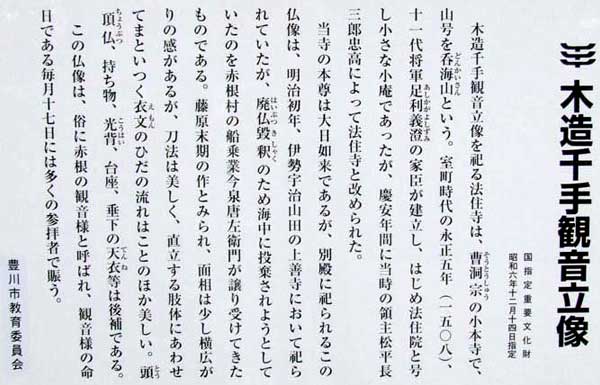 木造千手観音立像
国指定重要文化財
昭和六年十二月十四日指定
木造千手観音立像を祀る法住寺は、曹洞宗の小本寺で、
山号を呑海山という。室町時代の永正五年（一五〇八）、
十一代将軍足利義澄の家臣が建立し、はじめ法住院と号
し小さな小庵であったが、慶安年間に当時の領主松平長
三郎忠高によって法住寺と改められた。
当寺の本尊は大日如来であるが、別殿に祀られるこの
仏像は、明治初年、伊勢宇治山田の上善寺において祀ら
れていたが、廃仏毀釈のため海中に投棄されようとして
いたのを赤根村の船乗業今泉唐左衛門が譲り受けてきた
ものである。藤原末期の作とみられ、面相は少し横広が
りの感があるが、刀法は美しく、直立する肢体にあわせ
てまといつく衣文のひだの流れはことのほか美しい。頭
頂仏、持ち物、光背、台座、垂下の天衣等は後補である。
この仏像は、俗に赤根の観音様と呼ばれ、観音様の命
日である毎月十七日には多くの参拝者で賑う。
豊川市教育委員会